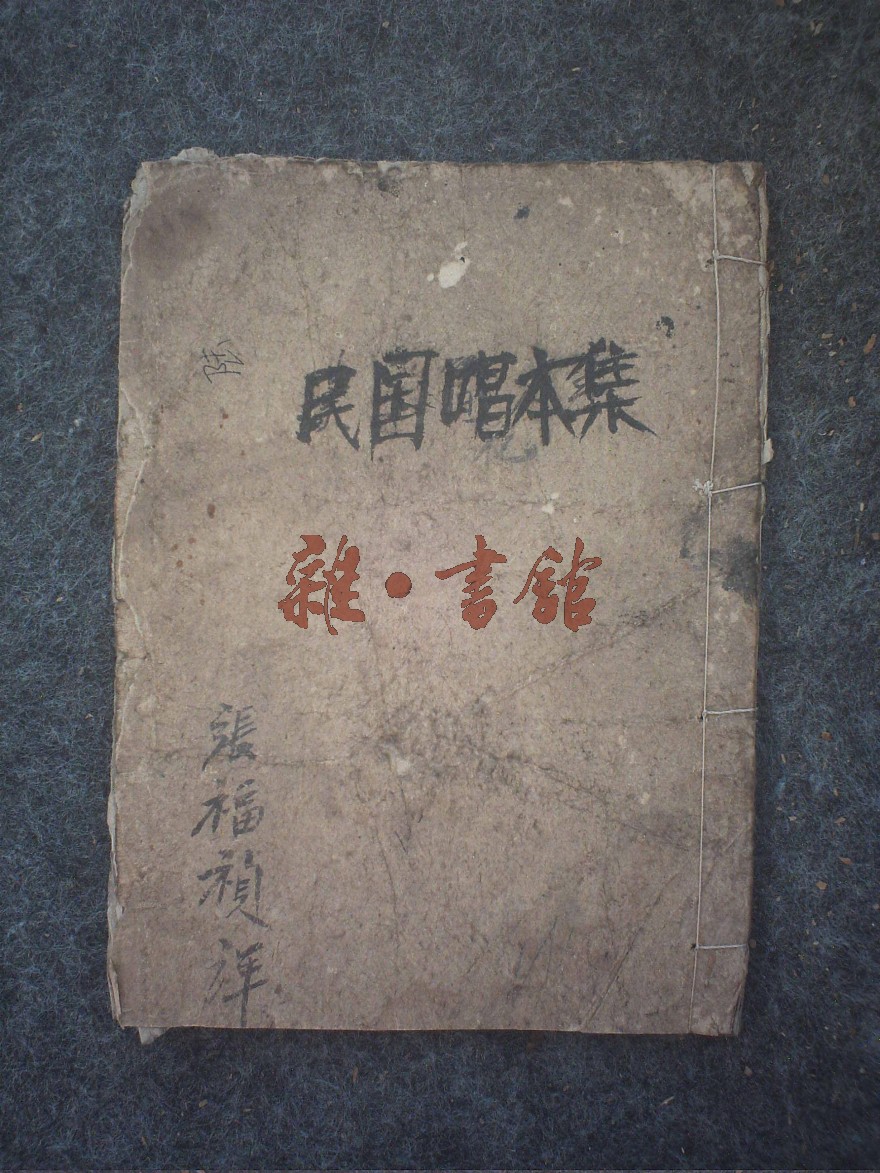 民国唱本集
雜·書館
張福禎祥